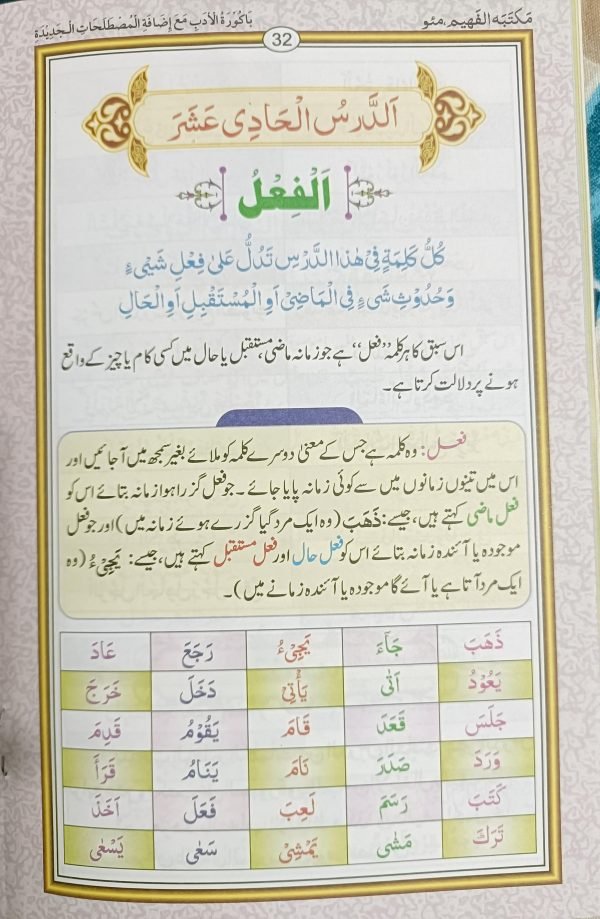 مکتبہ الفہیم، مئو
32
بَاکُوْرَۃُ الْاَدَبِ مَعَ اِضَافَۃِ الْمُصْطَلَحَاتِ الْجَدِیْدَۃِ
اَلدَّرْسُ الْحَادِیْ عَشَرَ
اَلْفِعْلُ
کُلُّ کَلِمَۃٍ فِیْ ھٰذَا الدَّرْسِ تَدُلُّ عَلٰی فِعْلِ شَیْیءٍ
وَحُدُوْثِ شَیْءٍ فِی الْمَاضِیْ اَوِ الْمُسْتَقْبِلِ اَوِ الْحَالِ
اس سبق کا ہر کلمہ ”فعل“ ہے جو زمانہ ماضی، مستقبل یا حال میں کسی کام یا چیز کے واقع
ہونے پر دلالت کرتا ہے۔
فعل: وہ کلمہ ہے جس کے معنیٰ دوسرے کلمہ کو ملائے بغیر سمجھ میں آجائیں اور
اس میں تینوں زمانوں میں سے کوئی زمانہ پایا جائے۔ جو فعل گزرا ہوا زمانہ بتائے اس کو
فعل ماضی کہتے ہیں، جیسے: ذَھَبَ (وہ ایک مرد گیا گزرے ہوئے زمانہ میں) اور جو فعل
موجودہ یا آئندہ زمانہ بتائے اس کو فعل حال اور فعل مستقبل کہتے ہیں، جیسے: یَجِیْءُ (وہ
ایک مرد آتا ہے یا آئے گا موجودہ یا آئندہ زمانے میں)۔
ذَھَبَ جَآءَ یَجِیْءُ رَجَعَ عَادَ
یَعُوْدُ اَتٰی یَأْتِیْ دَخَلَ خَرَجَ
جَلَسَ قَعَدَ قَامَ یَقُوْمُ قَدِمَ
وَرَدَ صَدَرَ نَامَ یَنَامُ قَرَأَ
کَتَبَ رَسَمَ لَعِبَ فَعَلَ اَخَذَ
تَرَكَ مَشٰی یَمْشِیْ سَعٰی یَسْعٰی